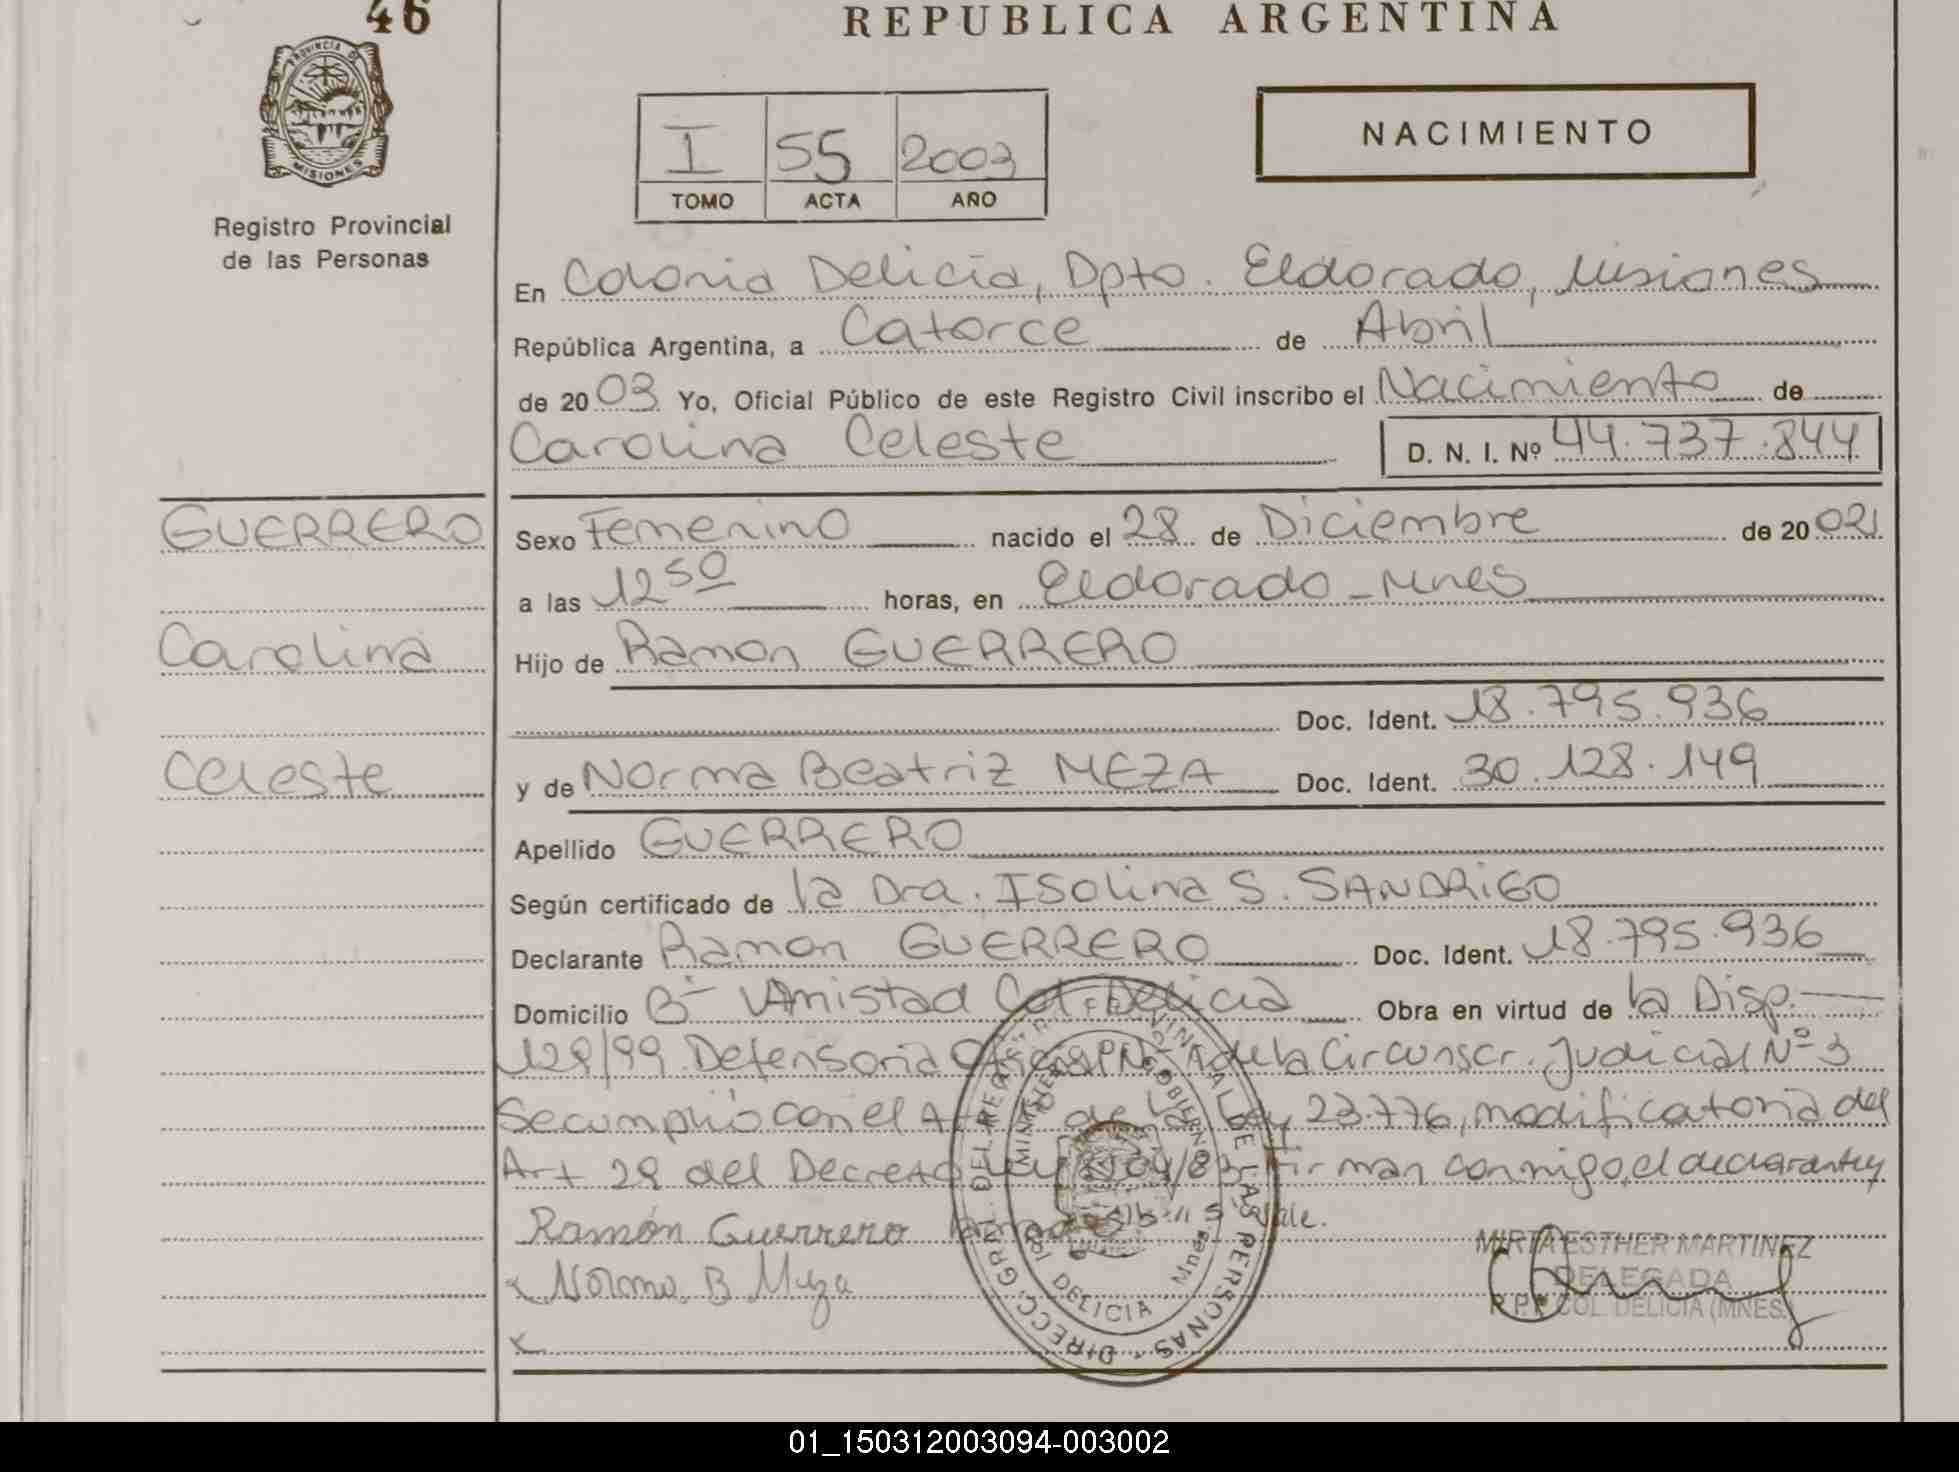 46
REPUBLICA ARGENTINA
PROVINCIA DE
MISIONES
Registro Provincial
de las Personas
I 55 2003
TOMO ACTA AÑO
NACIMIENTO
En Colonia Delicia, Dpto. Eldorado, Misiones
República Argentina, a Catorce de Abril
de 2003 Yo, Oficial Público de este Registro Civil inscribo el Nacimiento de
Carolina Celeste D. N. I. Nº 44.737.844
GUERRERO
Carolina
Celeste
Sexo Femenino nacido el 28 de Diciembre de 2002
a las 12 50 horas, en Eldorado - Mnes
Hijo de Ramon GUERRERO
Doc. Ident. 18.795.936
y de Norma Beatriz MEZA Doc. Ident. 30.128.149
Apellido GUERRERO
Según certificado de la Dra. Isolina S. SANDRIGO
Declarante Ramon GUERRERO Doc. Ident. 18.795.936
Domicilio Bº Amistad Col Delicia Obra en virtud de la Disp.
128/99 Defensoria Oficial Nº de la Circunscr. Judicial Nº 3
Se cumplió con el Art de la Ley 23.776, modificatoria del
Art 29 del Decreto Ley 8204/83 firman conmigo, el declarante y
Ramón Guerrero Vale.
Norma B Meza
MIRTA ESTHER MARTINEZ
DELEGADA
R.P.P. COL. DELICIA (MNES.)
DIRECC. GRAL. DEL REGISTRO PROVINCIAL DE LAS PERSONAS
MINISTERIO DE GOBIERNO
Col DELICIA Mnes.
01_150312003094-003002